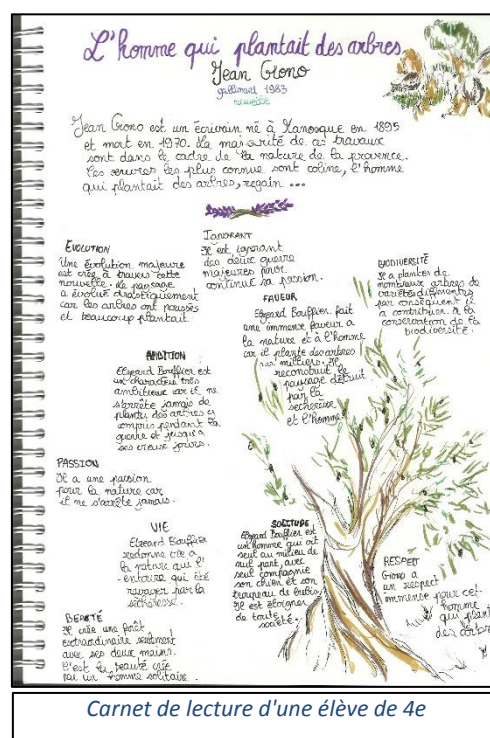 L'homme qui plantait des arbres
Jean Giono
gallimard 1983
nouvelle
Jean Giono est un écrivain né à Manosque en 1895
et mort en 1970. La majorité de ces travaux
sont dans le cadre de la nature de la provence.
Ces œuvres les plus connue sont coline, l'homme
qui plantait des arbres, regain ...
EVOLUTION
Une évolution majeure
est crée à travers cette
nouvelle. Le paysage
a évolué drastiquement
car les arbres ont poussés
et beaucoup plantait.
IGNORANT
Il est ignorant
des deux guerre
majeures pour
continué sa passion.
FAVEUR
Elzeard Bouffier fait
une immense faveur a
la nature et à l'homme
car il plante des arbres
par milliers. Il
reconstruit le
paysage détruit
par la
sécheresse
et l'homme.
BIODIVERSITÉ
Il a planter de
nombreux arbres de
variétés différentes
par conséquent il
a contribuer à la
conservation de la
biodiversité.
AMBITION
Elzeard Bouffier est
un charactère très
ambitieux car il ne
s'arrête jamais de
planter des arbres y
compris pendant la
guerre et jusqu'à
ses vieux jours.
PASSION
Il a une passion
pour la nature car
il ne s'arrête jamais.
VIE
Elzeard Bouffier
redonne vie a
la nature qui l'
entoure qui été
ravager par la
sécheresse.
SOLITUDE
Elzeard Bouffier est
un homme qui vit
seul au milieu de
nul part, avec
seul compagnie
son chien et son
troupeau de brebis.
Il est éloigner
de toute
société.
RESPECT
Giono a
un respect
immense pour cet
homme
qui plante
des arbres
BEAUTÉ
Il crée une forêt
extraordinaire seulement
avec ses deux mains.
C'est la beauté crée
par un homme solitaire.
Carnet de lecture d'une élève de 4e